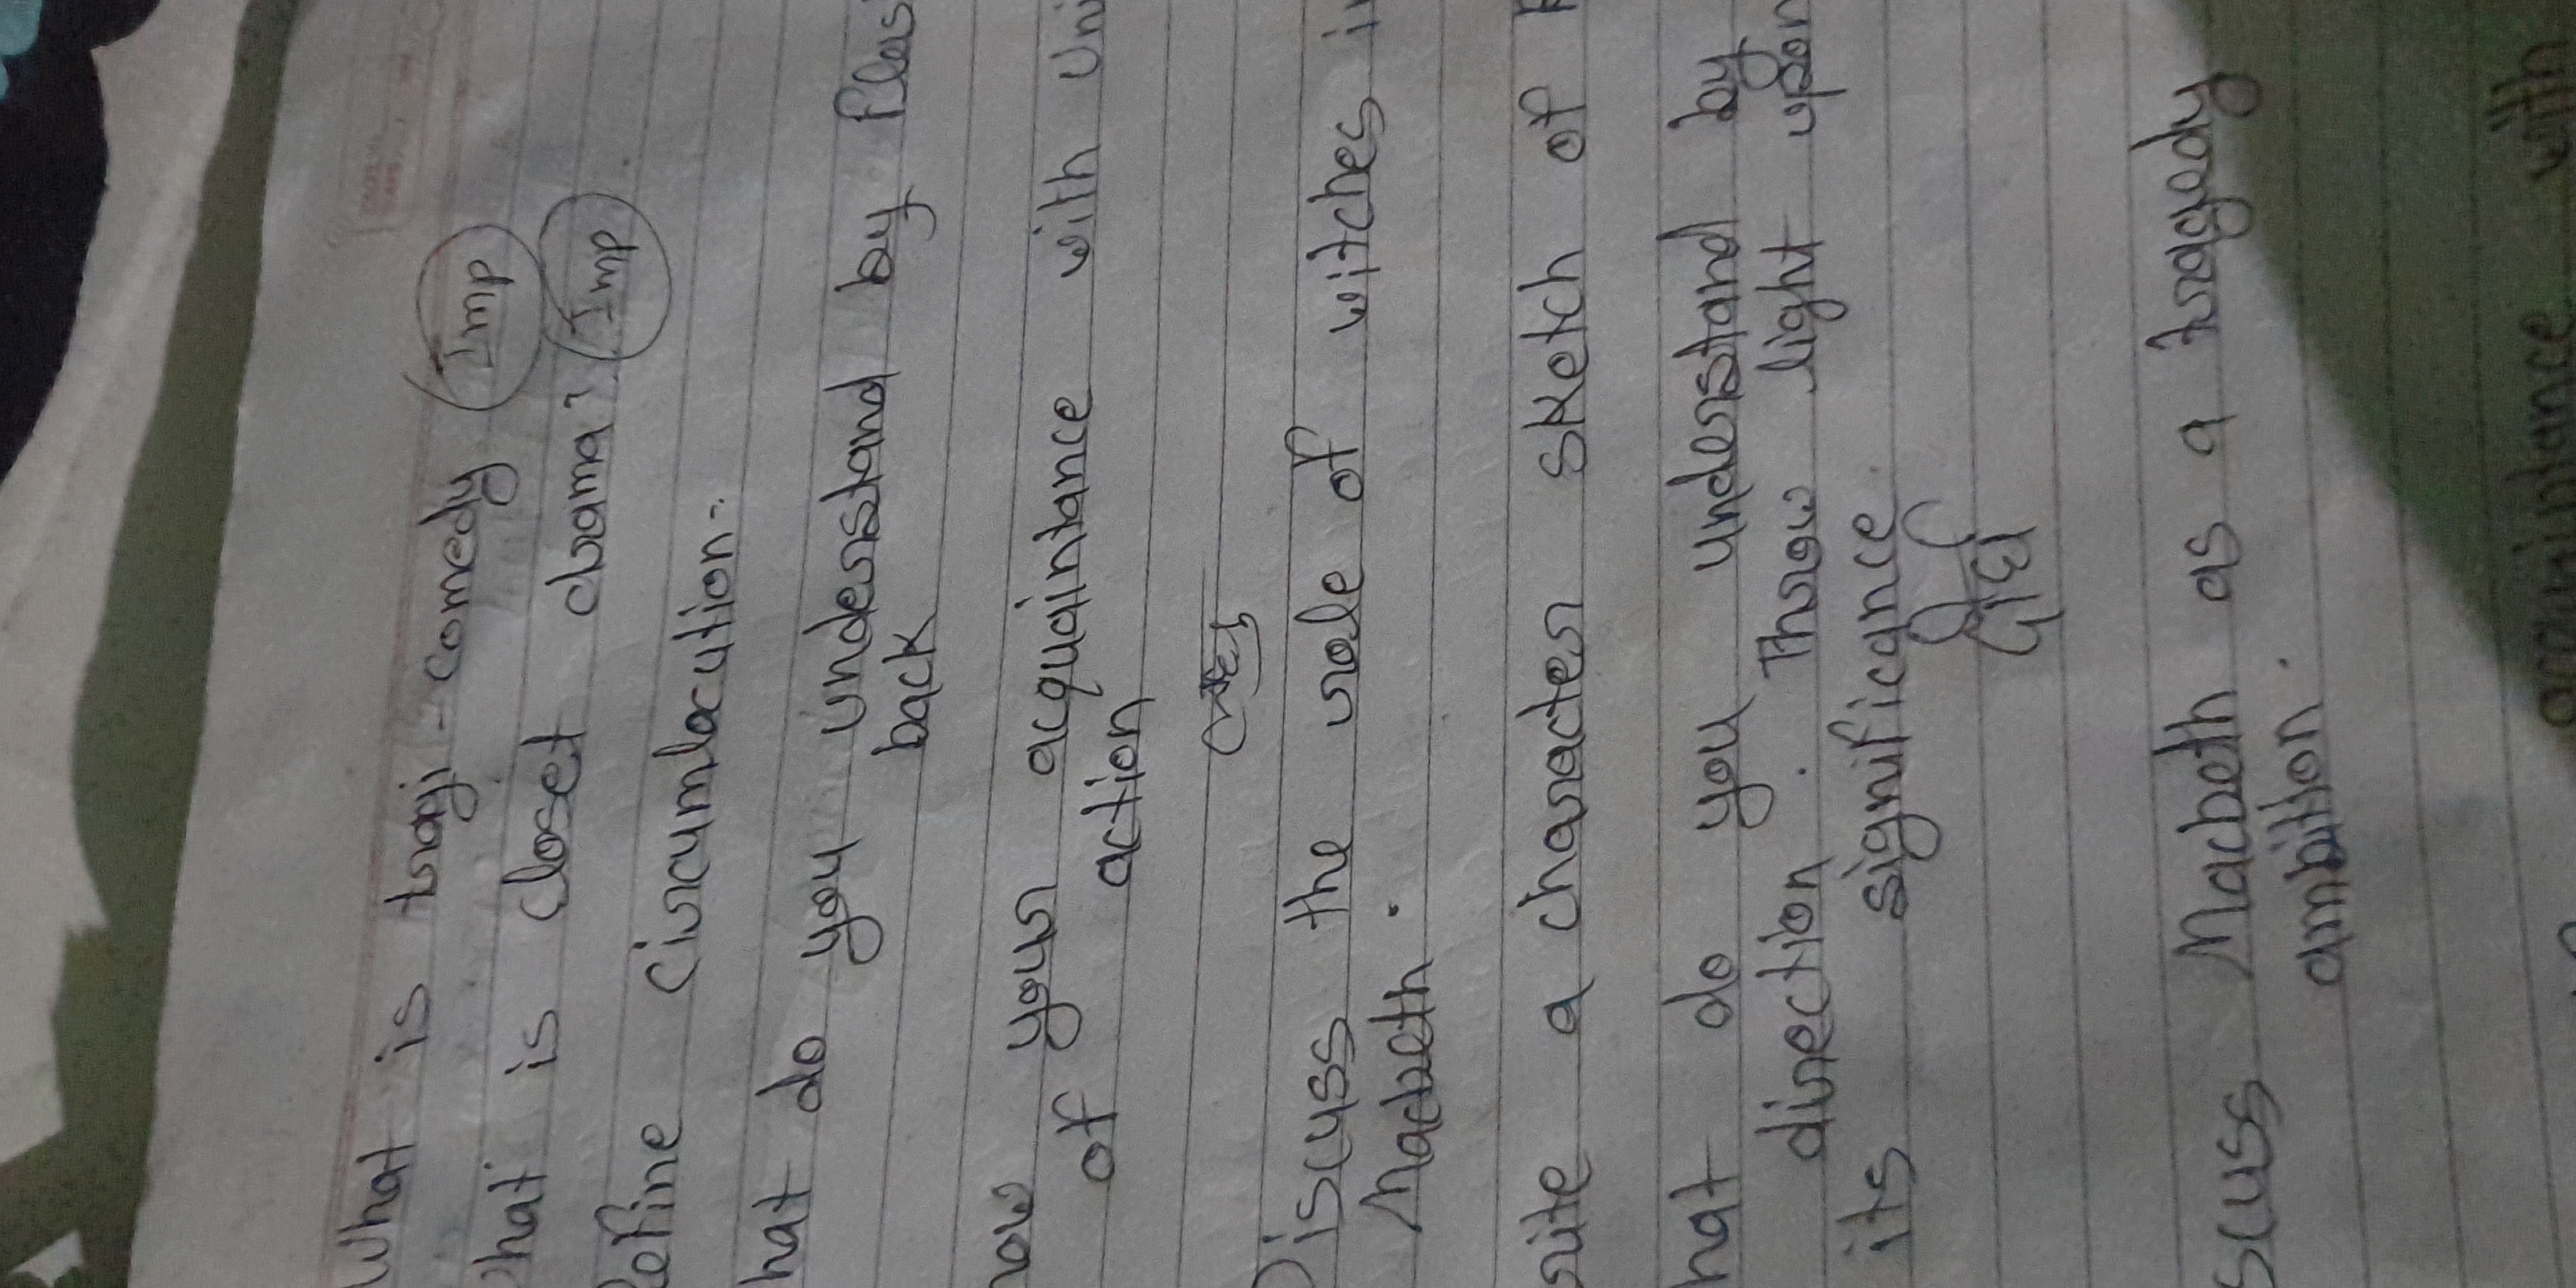 What is tragi-comedy Imp
hat is closet drama? Imp
efine Circumlocution.
hat do you understand by flas
back
ow your acquaintance with uni
of action
Discuss the role of witches in
Macbeth.
rite a character sketch of
hat do you understand by
direction. Throw light upon
its significance.
scuss Macbeth as a tragedy
ambition.
acquaintance with